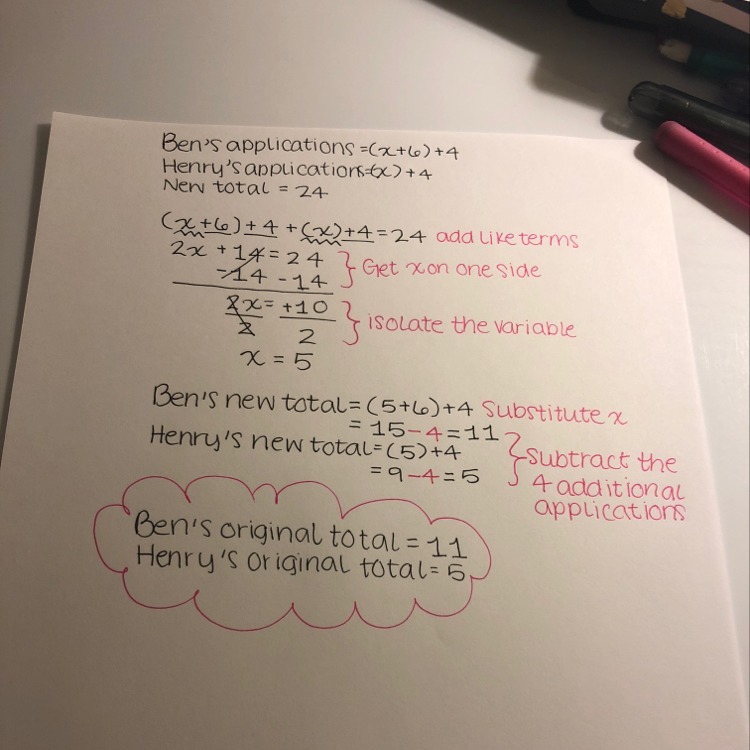 Ben's applications =(x+6)+4
Henry's applications=(x)+4
New total = 24
(x+6)+4+(x)+4=24 add like terms
2x +14=24
-14 -14
Get x on one side
2x= +10
2 2
isolate the variable
x = 5
Ben's new total=(5+6)+4 Substitute x
= 15-4=11
Henry's new total=(5)+4
= 9-4=5
Subtract the
4 additional
applications
Ben's original total = 11
Henry's original total= 5